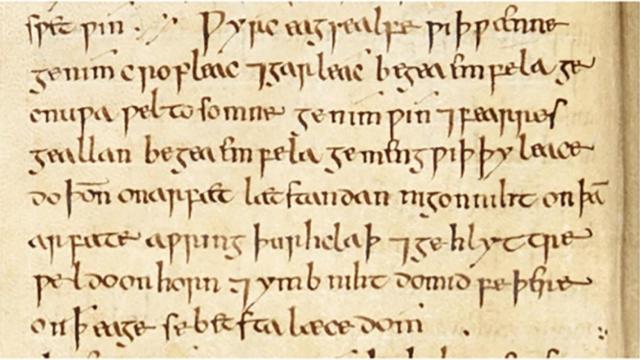 sƿet ƿin . :, ƿyrc eagsealfe ƿiþ ƿænne
genim cropleac ⁊ garleac begea emfela ge
cnuƿa ƿel to somne genim ƿin ⁊ fearres
geallan begea emfela gemeng ƿiþ þy leace
do þoñ on arfæt læt standan nigon niht on þā
arfæte aƿring þurh claþ ⁊ gehlyttre
ƿel do on horn ⁊ ymb niht do mid feþre
on ꝥ eage se betsta læce dom .